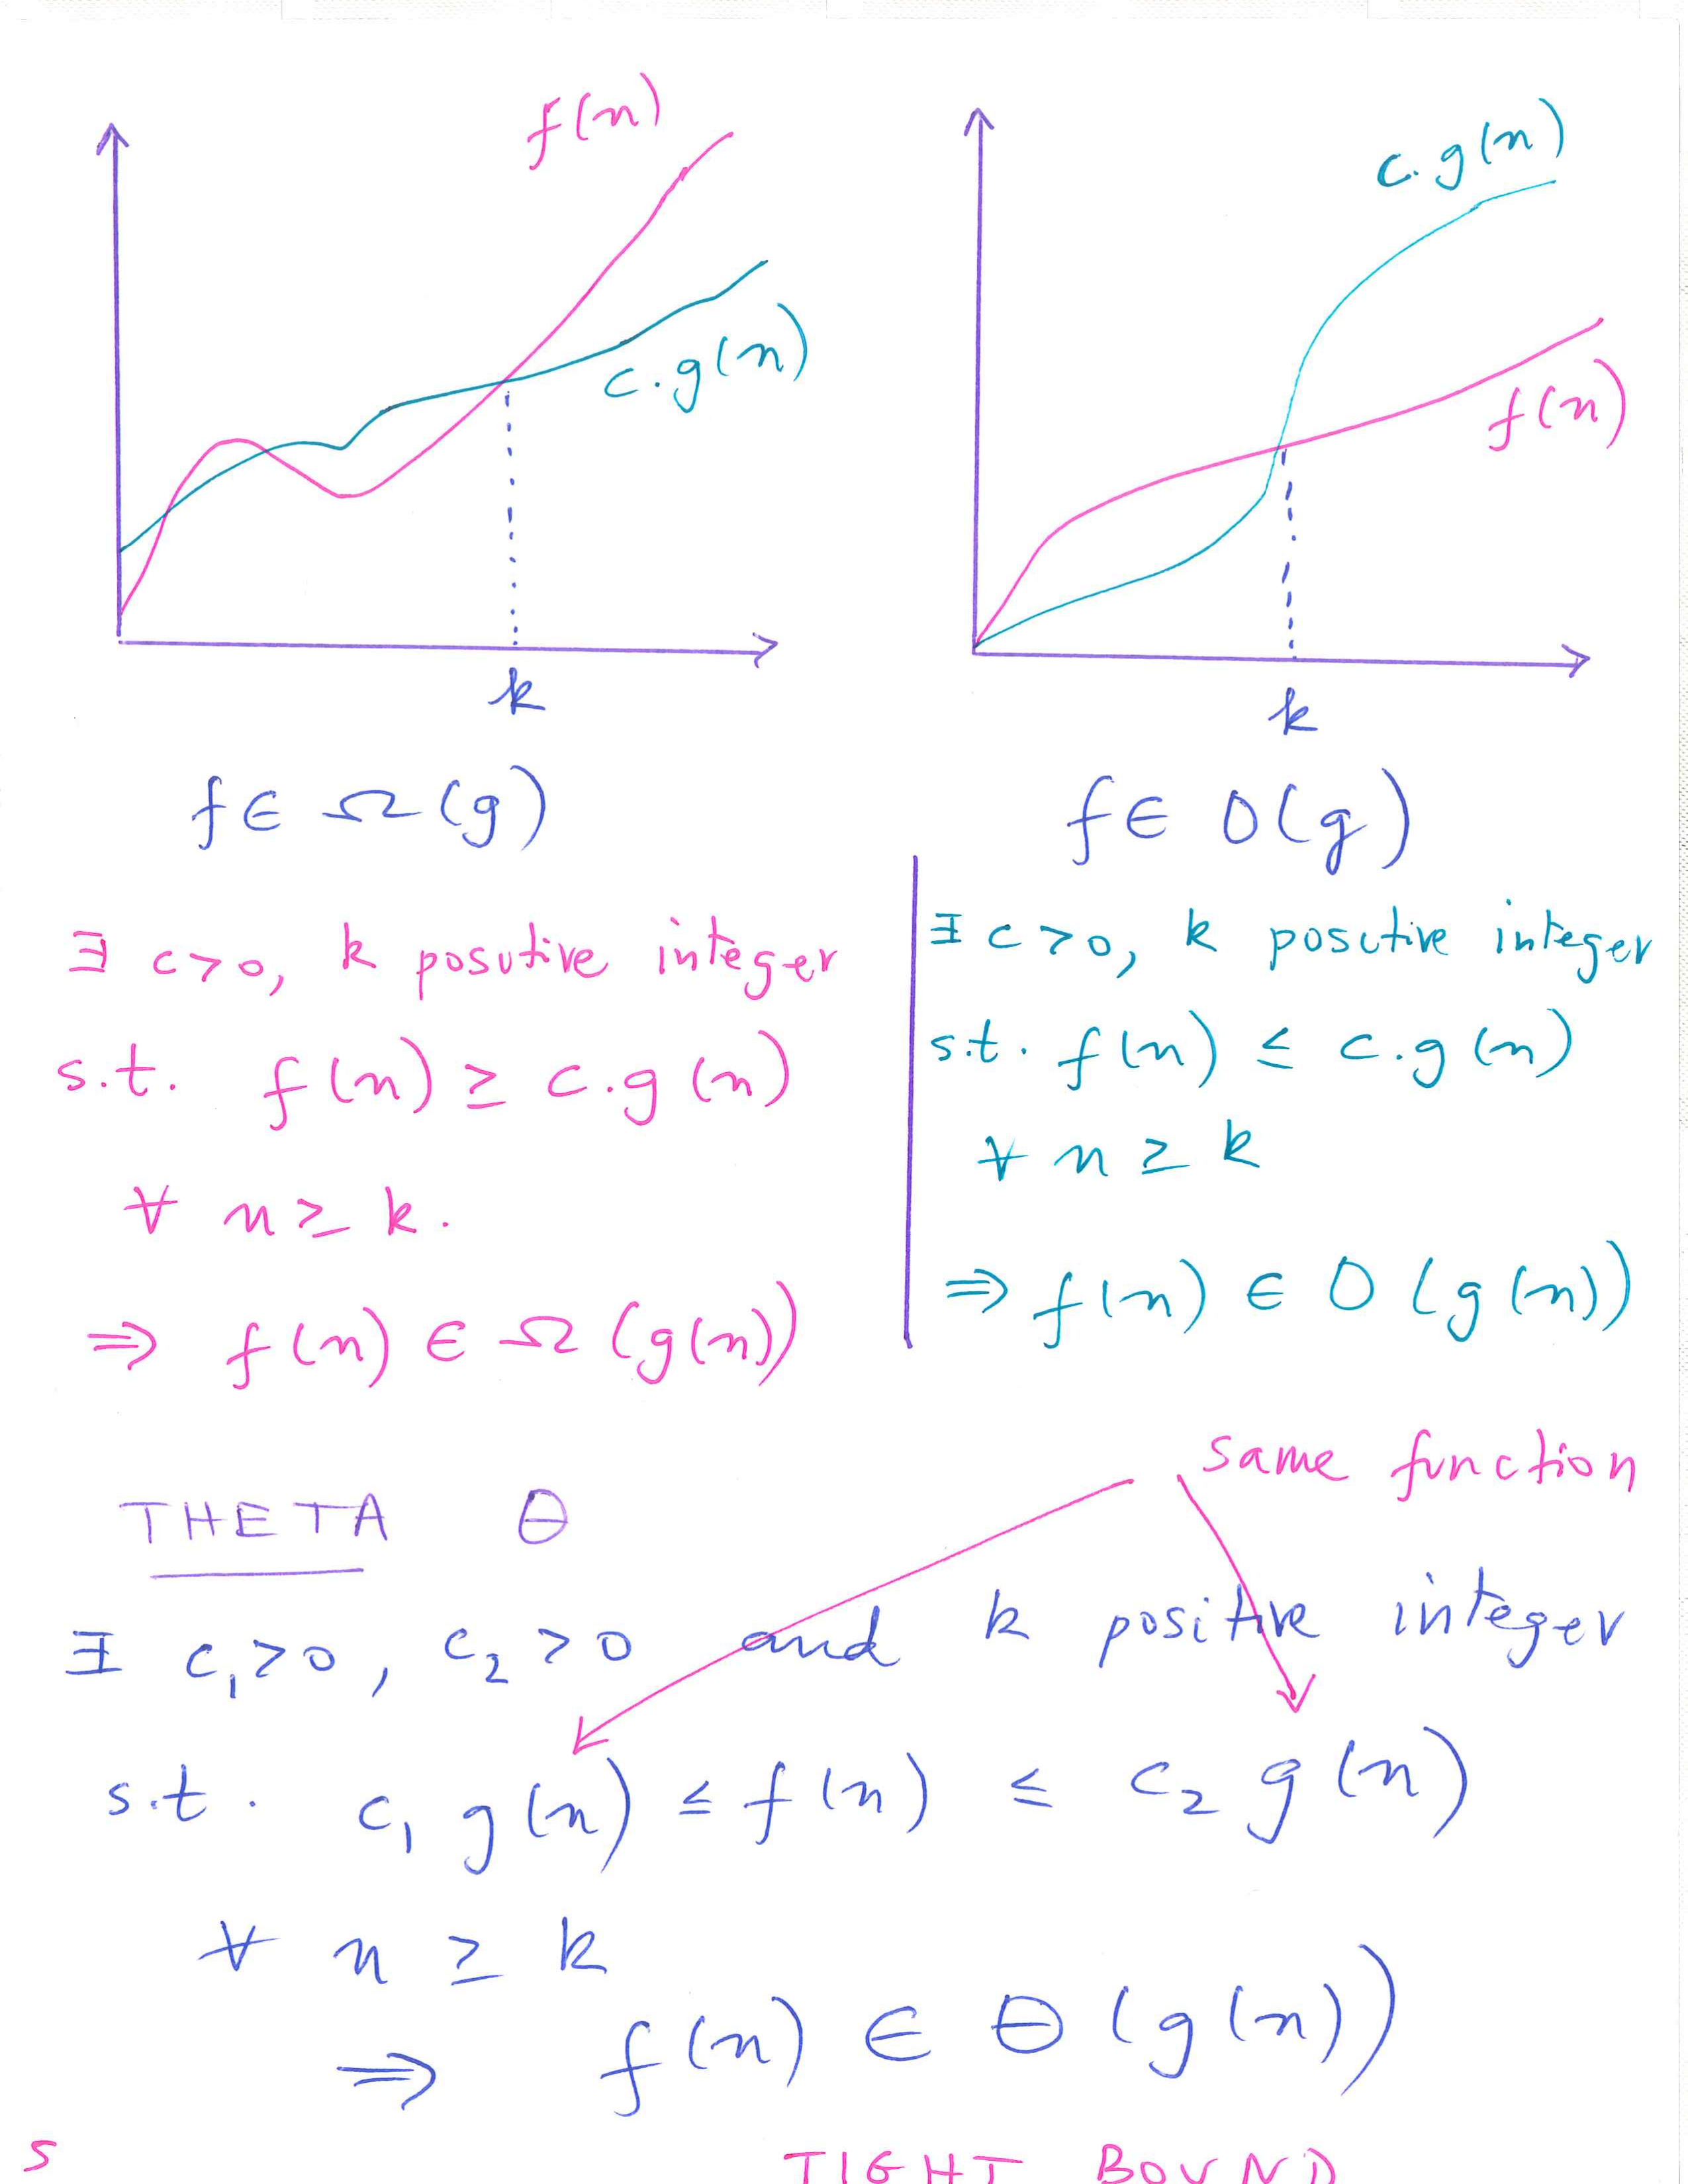 f(n)
c.g(n)
k
f ∈ Ω (g)
∃ c>0, k positive integer
s.t. f(n) ≥ c.g(n)
∀ n ≥ k.
⇒ f(n) ∈ Ω (g(n))
c.g(n)
f(n)
k
f ∈ O(g)
∃ c>0, k positive integer
s.t. f(n) ≤ c.g(n)
∀ n ≥ k
⇒ f(n) ∈ O (g(n))
same function
THETA Θ
∃ c₁>0, c₂>0 and k positive integer
s.t. c₁ g(n) ≤ f(n) ≤ c₂ g(n)
∀ n ≥ k
⇒ f(n) ∈ Θ (g(n))
5 TIGHT BOUND